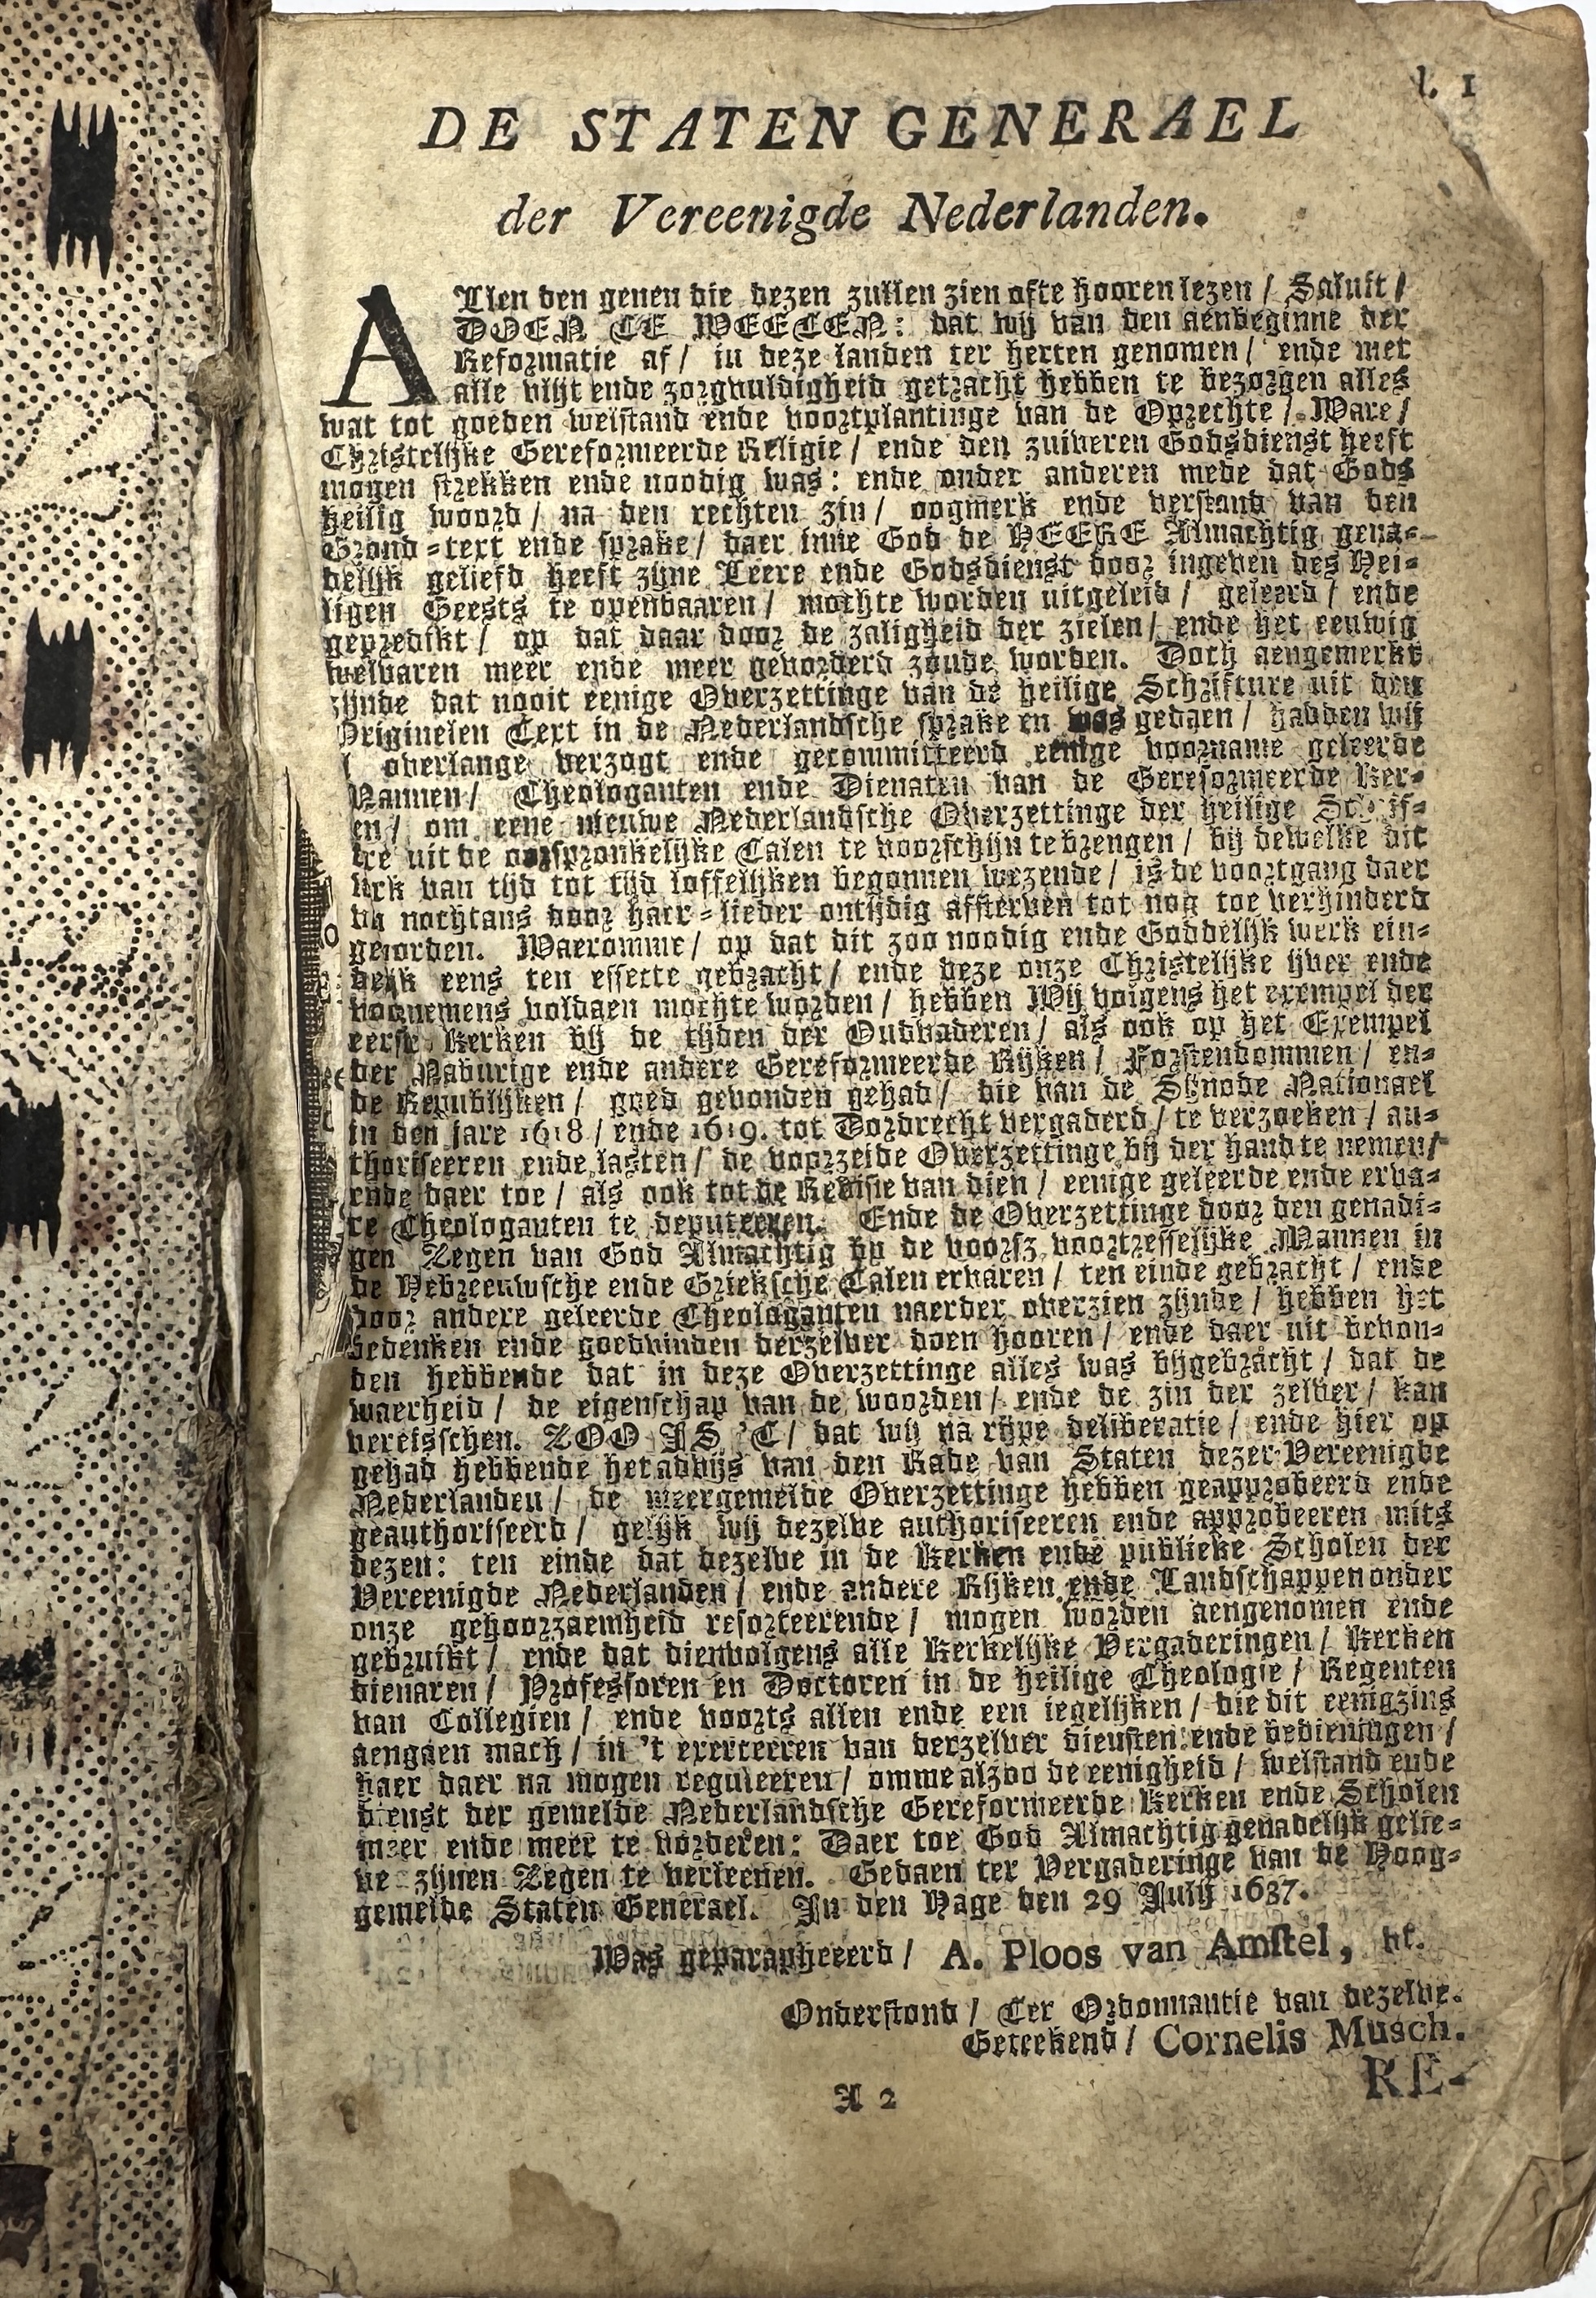 1
DE STATEN GENERAEL
der Vereenigde Nederlanden.
ALlen den genen die dezen zullen zien ofte hooren lezen / Saluit /
DOEN TE WEETEN: dat wij van den aenbeginne der
Reformatie af / in deze landen ter herten genomen / ende met
alle vlijt ende zorgvuldigheid getracht hebben te bezorgen alles
wat tot goeden welstand ende voortplantinge van de Oprechte / Ware /
Christelijke Gereformeerde Religie / ende den zuiveren Godsdienst heeft
mogen strekken ende noodig was: ende onder anderen mede dat Gods
heilig woord / na den rechten zin / oogmerk ende verstand van den
Grond-text ende sprake / daer inne God de HEERE Almachtig gena-
delijk geliefd heeft zijne Leere ende Godsdienst door ingeven des Hei-
ligen Geests te openbaaren / mochte worden uitgeleid / geleerd / ende
gepredikt / op dat daar door de zaligheid der zielen / ende het eeuwig
welvaren meer ende meer gevorderd zoude worden. Doch aengemerkt
zijnde dat nooit eenige Overzettinge van de heilige Schrifture uit den
Originelen Text in de Nederlandsche sprake en was gedaen / hadden wij
overlange verzogt ende gecommitteerd eenige voorname geleerde
Mannen / Theologanten ende Dienaren van de Gereformeerde Ker-
en / om eene nieuwe Nederlandsche Overzettinge der heilige Schrif-
tre uit de oorspronkelijke Talen te voorschijn te brengen / bij dewelke dit
erk van tijd tot tijd loffelijken begonnen wezende / is de voortgang daer
va nochtans door haer-lieder ontijdig afsterven tot nog toe verhinderd
geworden. Waeromme / op dat dit zoo noodig ende Goddelijk werk ein-
delijk eens ten effecte gebracht / ende deze onze Christelijke ijver ende
voornemens voldaen mochte worden / hebben Wij volgens het exempel der
eerste Kerken bij de tijden der Oudvaderen / als ook op het Exempel
der Naburige ende andere Gereformeerde Rijken / Forstendommen / en-
de Republijken / goed gevonden gehad / die van de Sijnode Nationael
in den jare 1618 / ende 1619. tot Dordrecht vergaderd / te verzoeken / au-
thoriseeren ende lasten / de voorzeide Overzettinge bij der hand te nemen /
ende daer toe / als ook tot de Revisie van dien / eenige geleerde ende erva-
re Theologanten te deputeeren. Ende de Overzettinge door den genadi-
gen Zegen van God Almachtig by de voorsz voortreffelijke Mannen in
de Hebreeuwsche ende Grieksche Talen ervaren / ten einde gebracht / ende
door andere geleerde Theologanten naerder overzien zijnde / hebben het
bedenken ende goedvinden derzelver doen hooren / ende daer uit bevon-
den hebbende dat in deze Overzettinge alles was bijgebracht / dat de
waerheid / de eigenschap van de woorden / ende de zin der zelver / kan
vereisschen. ZOO IS 'T / dat wij na rijpe deliberatie / ende hier op
gehad hebbende het advijs van den Rade van Staten dezer Vereenigde
Nederlanden / de meergemelde Overzettinge hebben geapprobeerd ende
geauthoriseerd / gelijk wij dezelve authoriseeren ende approbeeren mits
dezen: ten einde dat dezelve in de Kerken ende publieke Scholen der
Vereenigde Nederlanden / ende andere Rijken ende Landschappen onder
onze gehoorzaemheid resorteerende / mogen worden aengenomen ende
gebruikt / ende dat dienvolgens alle Kerkelijke Vergaderingen / Kerken
dienaren / Professoren en Doctoren in de heilige Theologie / Regenten
van Collegien / ende voorts allen ende een iegelijken / die dit eenigzins
aengaen mach / in 't exerceeren van derzelver diensten ende bedieningen /
haer daer na mogen reguleeren / omme alzoo de eenigheid / welstand ende
dienst der gemelde Nederlandsche Gereformeerde Kerken ende Scholen
meer ende meer te vorderen: Daer toe God Almachtig genadelijk gelie-
ve zijnen Zegen te verleenen. Gedaen ter Vergaderinge van de Hoog-
gemelde Staten Generael. In den Hage den 29 Julij 1637.
Was geparapheeerd / A. Ploos van Amstel, vt.
Onderstond / Ter Ordonnantie van dezelve.
Geteekend / Cornelis Musch.
A 2
RE-